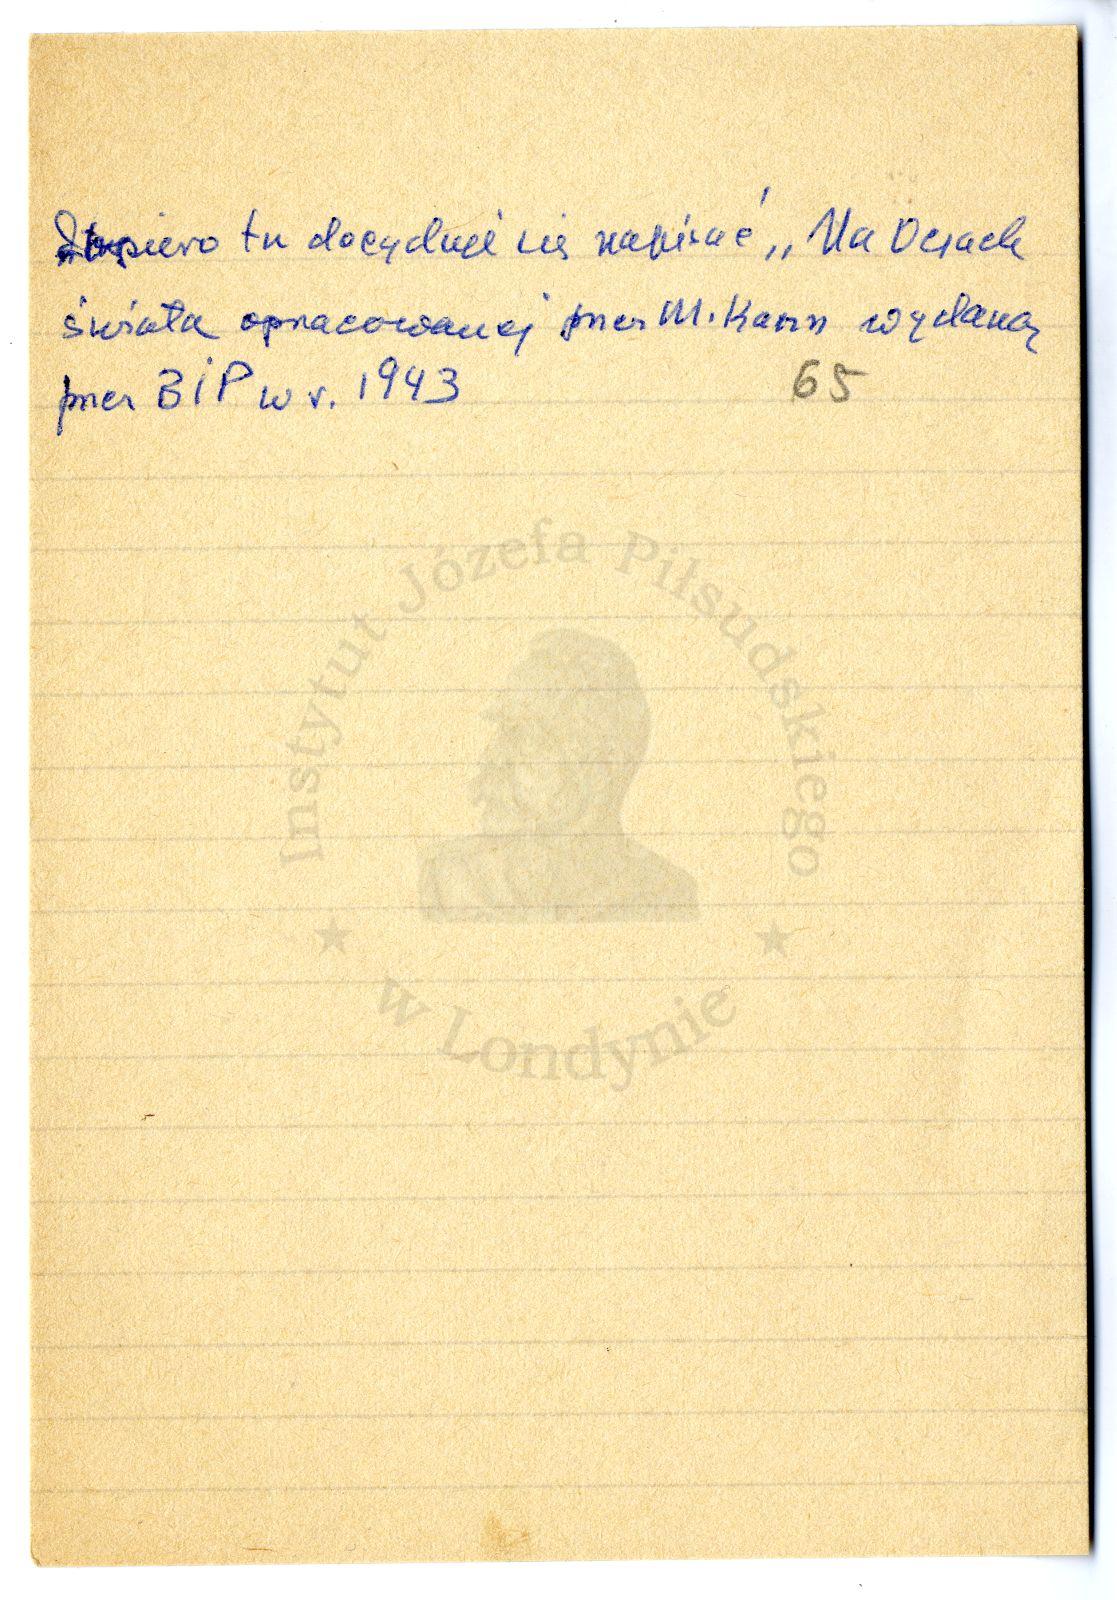 Dopiero tu decyduje się napisać „Na Oczach
świata opracowanej przez M. Kann wydaną
przez BIP w r. 1943
65
Instytut Józefa Piłsudskiego
w Londynie